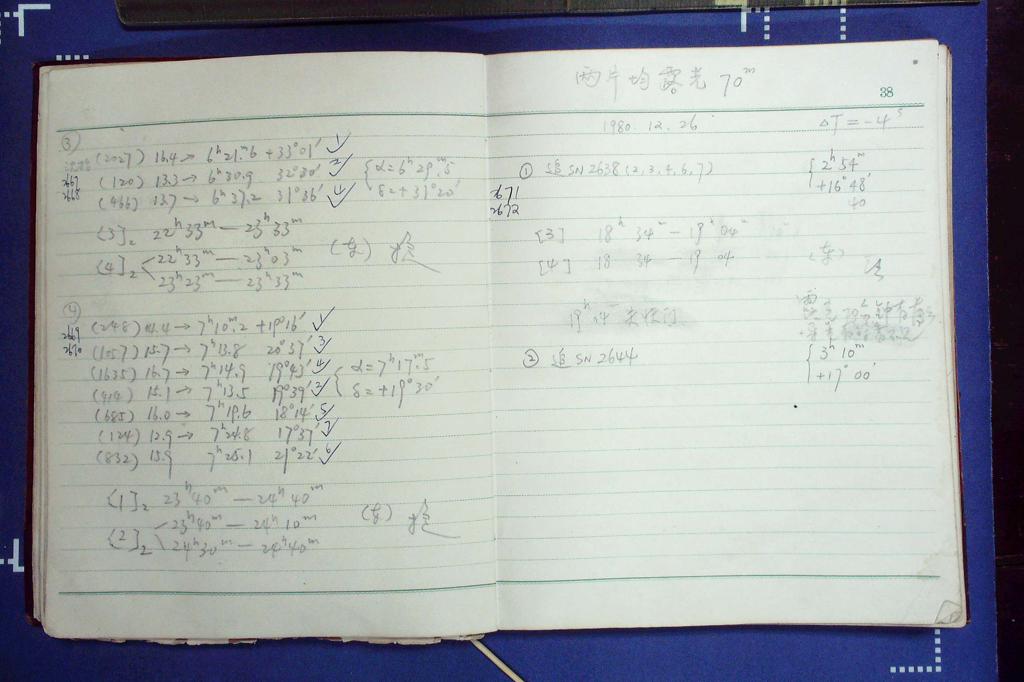 ③
(2027) 16.4 → 6ʰ21.ᵐ6 +33°01′ 1
2667 (120) 13.3 → 6ʰ30.9 32°30′ 2
2668 (466) 13.7 → 6ʰ37.2 31°36′ 4
{α=6ʰ29.ᵐ5
δ=+31°20′
[3]₂ 22ʰ33ᵐ — 23ʰ33ᵐ
[4]₂ 22ʰ33ᵐ — 23ʰ03ᵐ
23ʰ23ᵐ — 23ʰ33ᵐ
④
2669 (248) 14.4 → 7ʰ10.ᵐ2 +19°16′ 1
2670 (1057) 15.7 → 7ʰ13.8 20°37′ 3
(1635) 16.7 → 7ʰ14.9 19°43′ 4
(414) 15.1 → 7ʰ13.5 19°39′ 2
(685) 16.0 → 7ʰ19.6 18°14′ 5
(124) 12.9 → 7ʰ24.8 17°37′ 7
(832) 15.9 7ʰ25.1 21°22′ 6
{α=7ʰ17.ᵐ5
δ=+19°30′
[1]₂ 23ʰ40ᵐ — 24ʰ40ᵐ
[2]₂ 23ʰ40ᵐ — 24ʰ10ᵐ
24ʰ30ᵐ — 24ʰ40ᵐ
两片均露光 70ᵐ
38
1980.12.26 ΔT=-4ˢ
① 追 SN 2638 (2,3,4,6,7)
{2ʰ54ᵐ
+16°48′
40
2671
2672
[3] 18ʰ34ᵐ - 19ʰ04ᵐ
[4] 18 34 - 19 04 (东)
② 追 SN 2644
{3ʰ10ᵐ
+17°00′